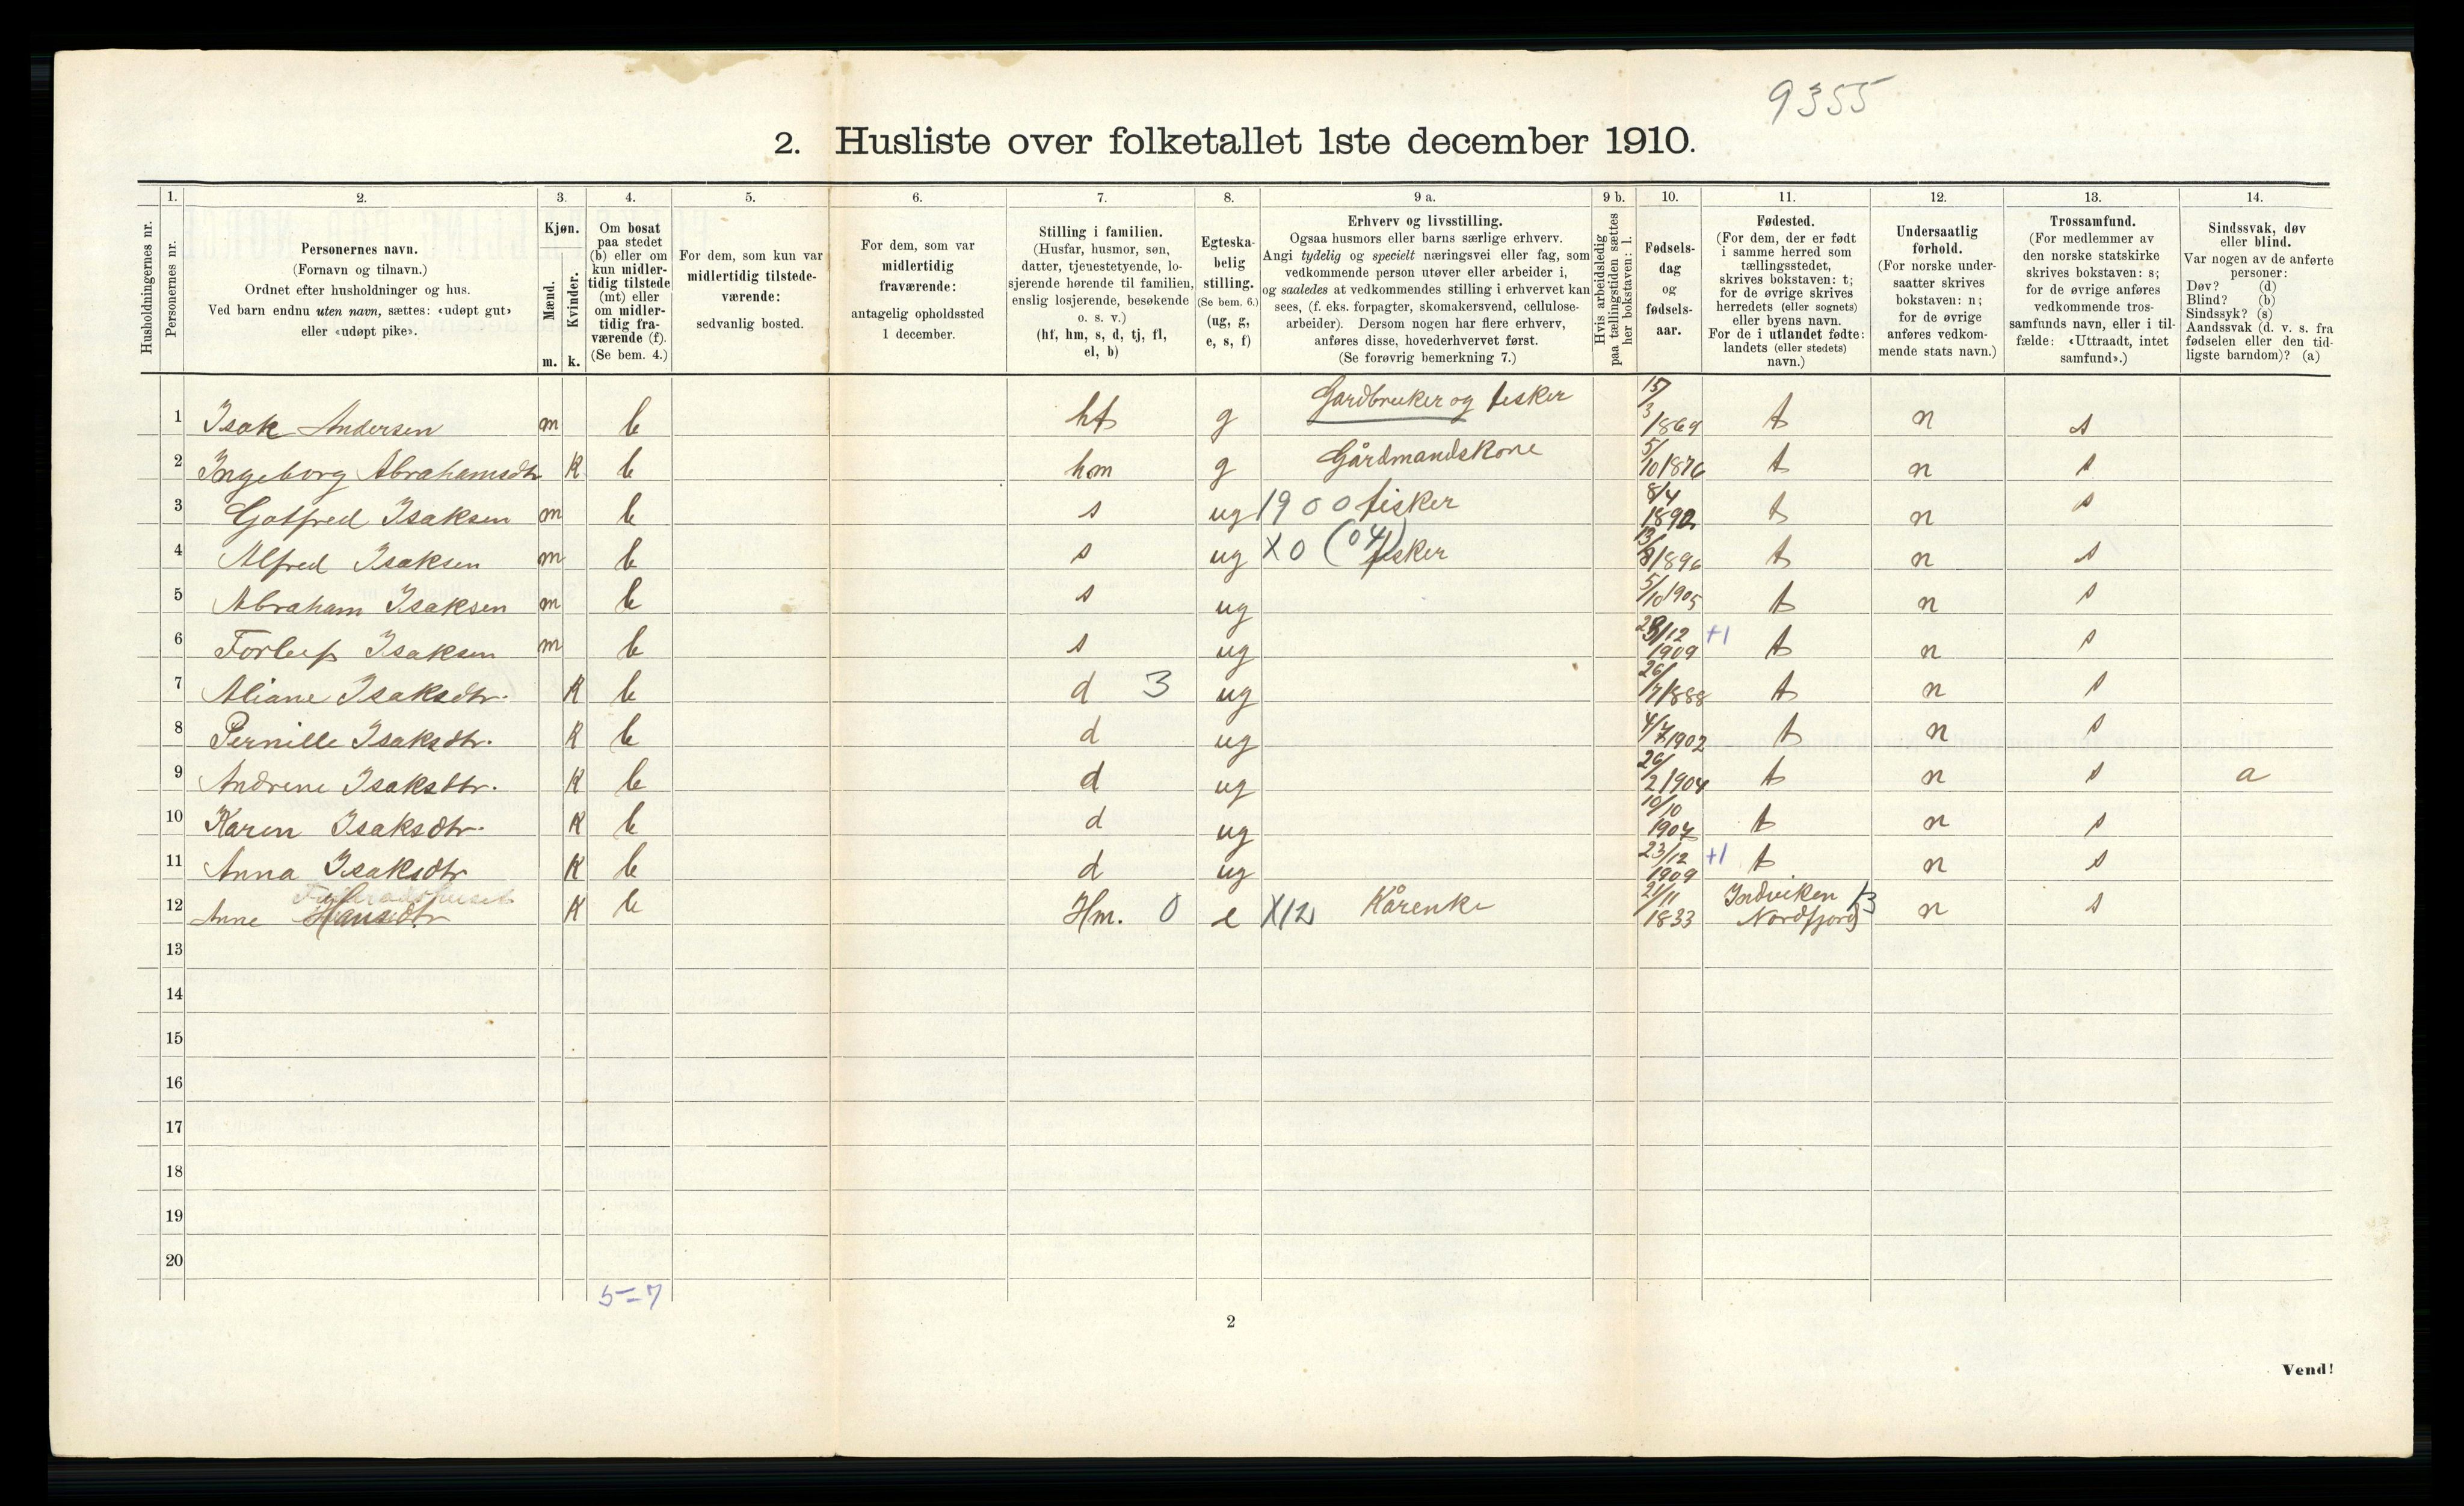 9355
2. Husliste over folketallet 1ste december 1910.
Husholdningernes nr.
1.
Personernes nr.
2.
Personernes navn.
(Fornavn og tilnavn.)
Ordnet efter husholdninger og hus.
Ved barn endnu uten navn, sættes: «udøpt gut»
eller «udøpt pike».
3.
Kjøn.
Mænd.
Kvinder.
m. k.
4.
Om bosat
paa stedet
(b) eller om
kun midler-
tidig tilstede
(mt) eller
om midler-
tidig fra-
værende (f).
(Se bem. 4.)
5.
For dem, som kun var
midlertidig tilstede-
værende:
sedvanlig bosted.
6.
For dem, som var
midlertidig
fraværende:
antagelig opholdssted
1 december.
7.
Stilling i familien.
(Husfar, husmor, søn,
datter, tjenestetyende, lo-
sjerende hørende til familien,
enslig losjerende, besøkende
o. s. v.)
(hf, hm, s, d, tj, fl,
el, b)
8.
Egteska-
belig
stilling.
(Se bem. 6.)
(ug, g,
e, s, f)
9 a.
Erhverv og livsstilling.
Ogsaa husmors eller barns særlige erhverv.
Angi tydelig og specielt næringsvei eller fag, som
vedkommende person utøver eller arbeider i,
og saaledes at vedkommendes stilling i erhvervet kan
sees, (f. eks. forpagter, skomakersvend, cellulose-
arbeider). Dersom nogen har flere erhverv,
anføres disse, hovederhvervet først.
(Se forøvrig bemerkning 7.)
9 b.
Hvis arbeidsledig
paa tællingstiden sættes
her bokstaven: l.
10.
Fødsels-
dag
og
fødsels-
aar.
11.
Fødested.
(For dem, der er født
i samme herred som
tællingsstedet,
skrives bokstaven: t;
for de øvrige skrives
herredets (eller sognets)
eller byens navn.
For de i utlandet fødte:
landets (eller stedets)
navn.)
12.
Undersaatlig
forhold.
(For norske under-
saatter skrives
bokstaven: n;
for de øvrige
anføres vedkom-
mende stats navn.)
13.
Trossamfund.
(For medlemmer av
den norske statskirke
skrives bokstaven: s;
for de øvrige anføres
vedkommende tros-
samfunds navn, eller i til-
fælde: «Uttraadt, intet
samfund».)
14.
Sindssvak, døv
eller blind.
Var nogen av de anførte
personer:
Døv? (d)
Blind? (b)
Sindssyk? (s)
Aandssvak (d. v. s. fra
fødselen eller den tid-
ligste barndom)? (a)
1 Isak Andersen m b hf g Gardbruker og fisker 15/3 1869 t n s
2 Ingeborg Abrahamsdtr K b hm g Gårdmandskone 5/10 1876 t n s
3 Gotfred Isaksen m b s ug 1900 fisker 8/4 1892 t n s
4 Alfred Isaksen m b s ug X0 (04) fisker 13/8 1896 t n s
5 Abraham Isaksen m b s ug 5/10 1905 t n s
6 Torleif Isaksen m b s ug /12 1909 +1 t n s
7 Aliane Isaksdtr. K b d 3 ug 26/7 1888 t n s
8 Pernille Isaksdtr. K b d ug 4/7 1902 t n s
9 Andrene Isaksdtr. K b d ug 26/2 1904 t n s a
10 Karen Isaksdtr. K b d ug 10/10 1907 t n s
11 Anna Isaksdtr K b d ug 23/12 1909 +1 t n s
12 Anne Hansdtr K b Hm. 0 e X12 Kårenke 21/11 1833 Indviken Nordfjord 13 n s
13
14
15
16
17
18
19
20
5=7
2
Vend!